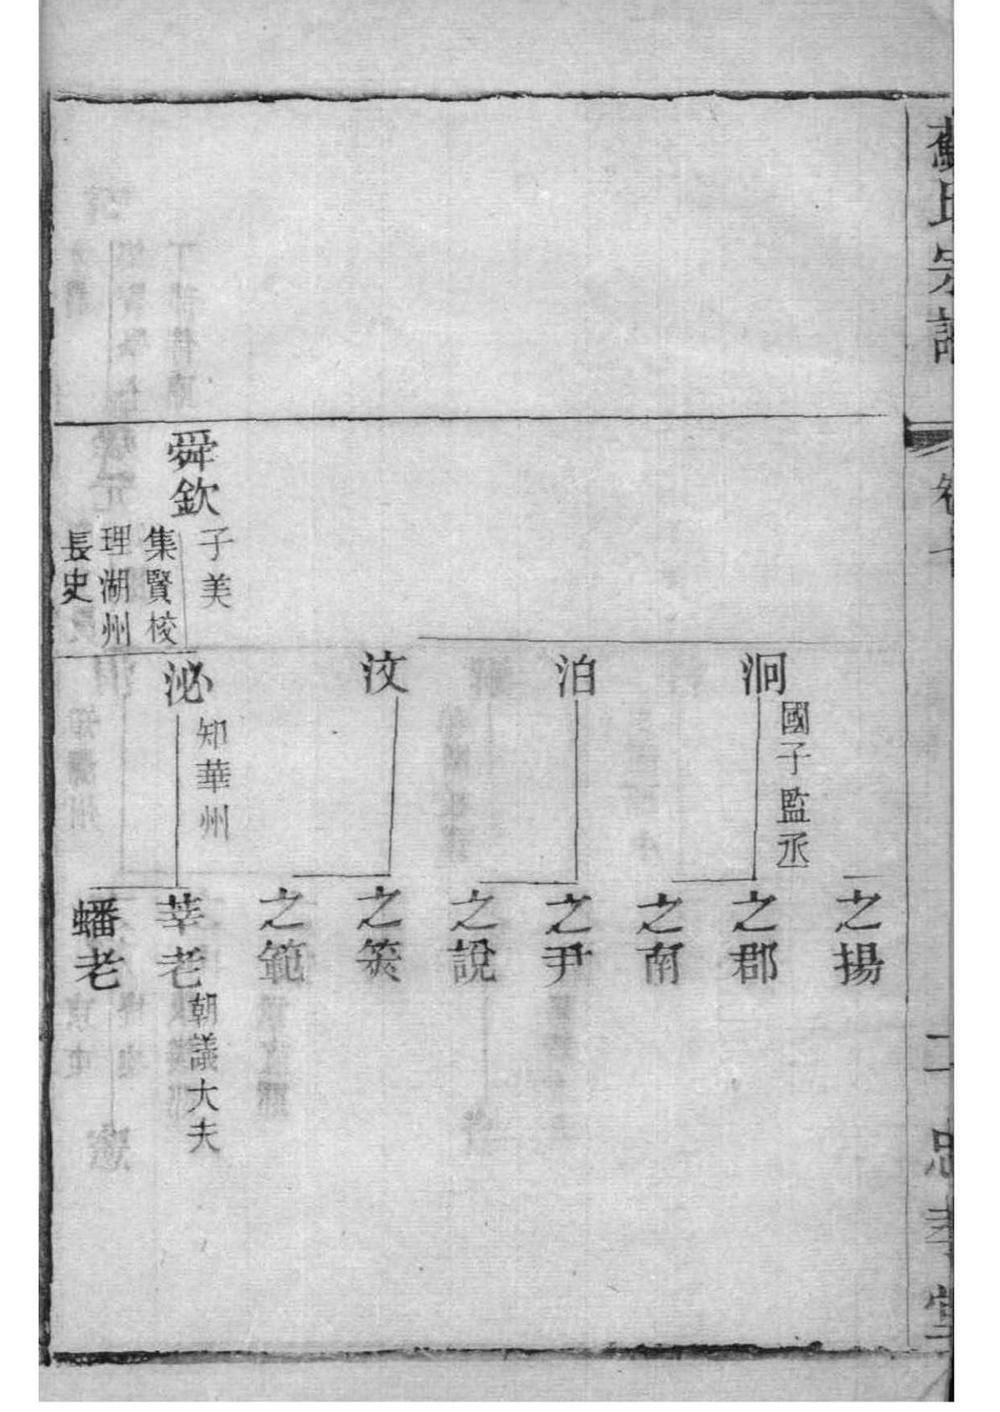 蘇氏宗譜
二
忠孝堂
舜欽
子美
集賢校
理湖州
長史
泂
國子監丞
泊
汶
泌
知華州
之揚
之郡
之南
之尹
之說
之範
莘老
朝議大夫
蟠老